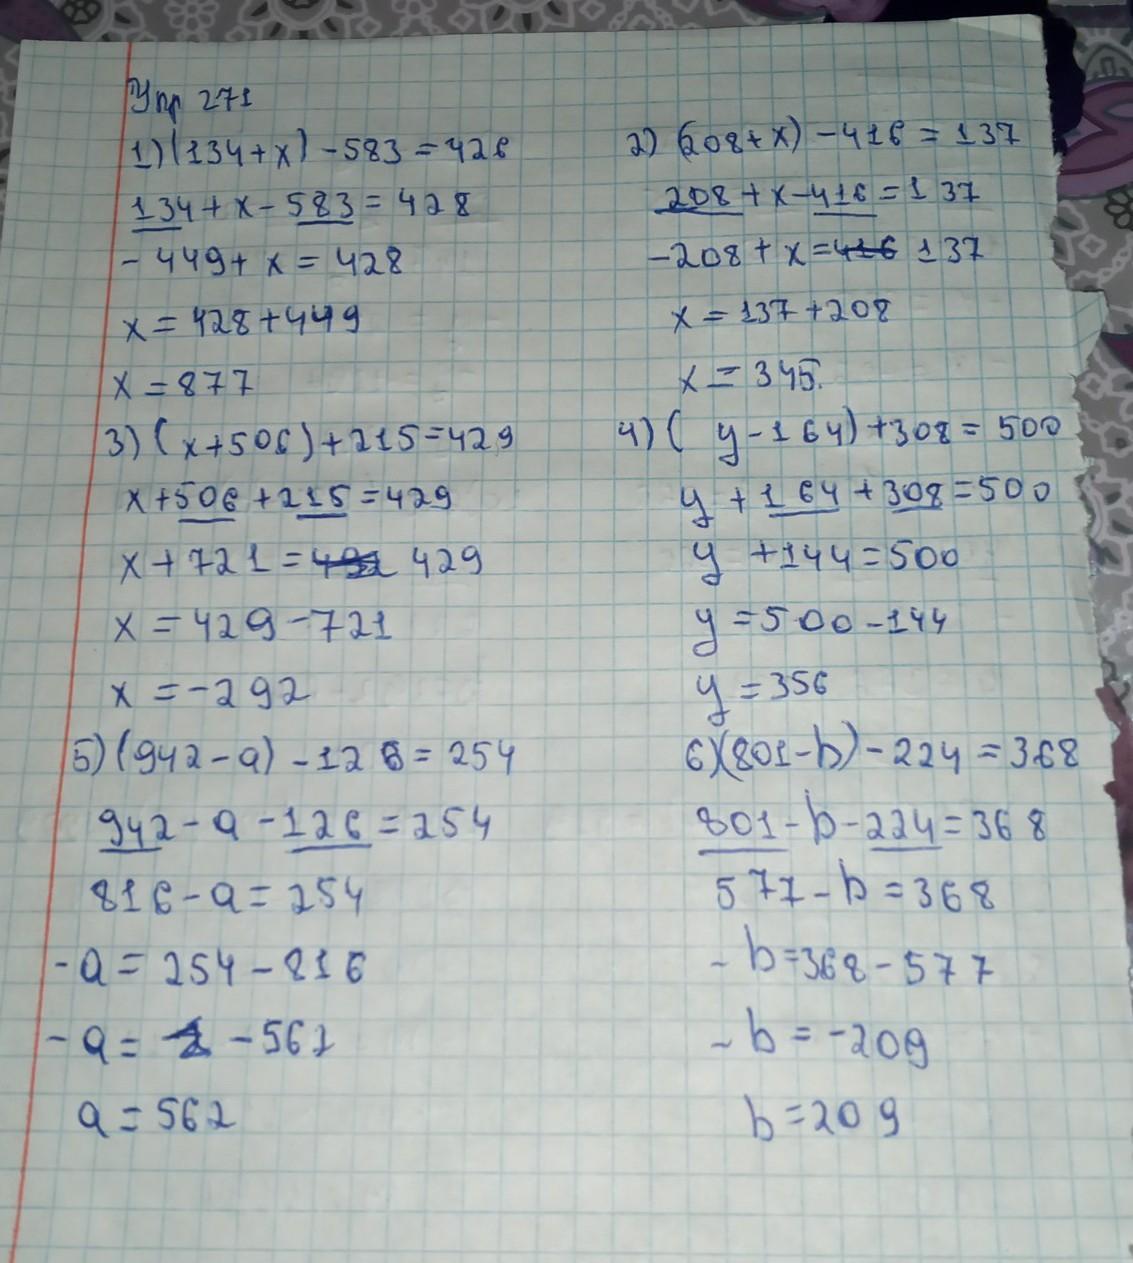 Упр 271
1) (134+x) -583=428
134+x-583=428
- 449+x=428
x=428+449
x=877
2) (208+x) -416=137
208+x-416=137
-208+x=416 137
x=137+208
x=345.
3) (x+506)+215=429
x+506+215=429
x+721= 429
x=429-721
x=-292
4) (y-164)+308=500
y+164+308=500
y+144=500
y=500-144
y=356
5) (942-a) -126=254
942-a-126=254
816-a=254
-a=254-816
-a= -561
a=562
6) (801-b) -224=368
801-b-224=368
577-b=368
-b=368-577
-b=-209
b=209